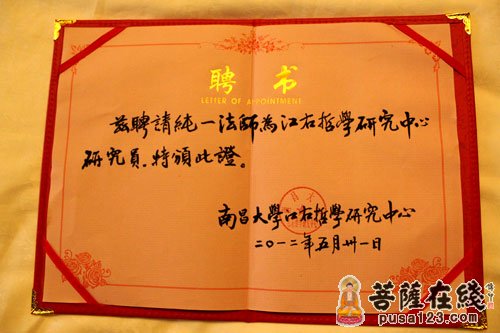 聘书
LETTER OF APPOINTMENT
兹聘請純一法師為江右哲學研究中心
研究員.特頒此證。
南昌大學江右哲學研究中心
二〇一二年五月卅一日
菩薩在綫
pusa123.com